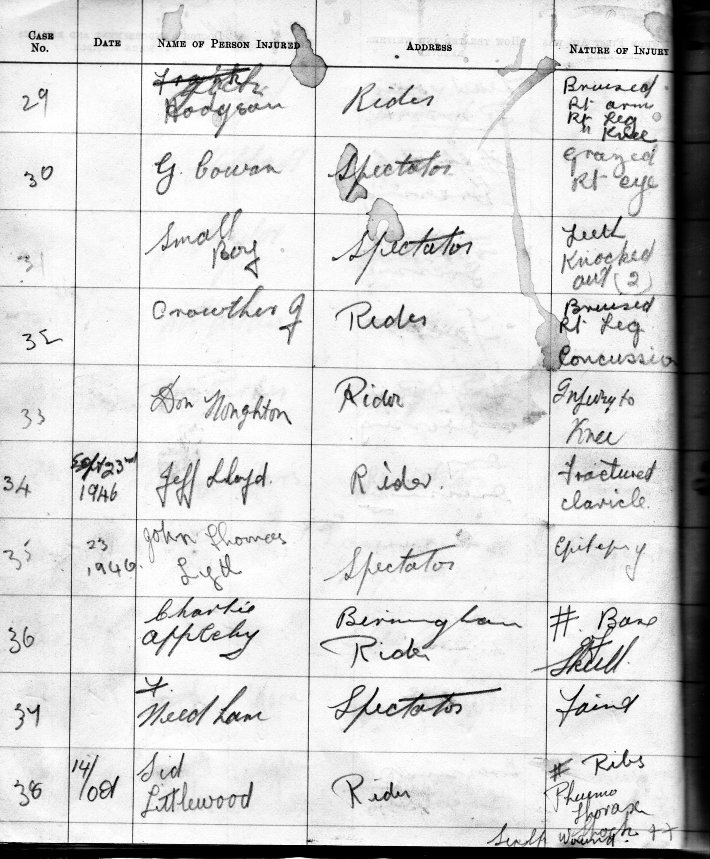 CASE No. DATE NAME OF PERSON INJURED ADDRESS NATURE OF INJURY
29 Hodgson Rider Bruised
Rt arm
Rt Leg
" Knee
30 G. Cowan Spectator Grazed
Rt eye
31 Small Boy Spectator Teeth
Knocked
out (2)
32 Crowther G Rider Bruised
Rt Leg
Concussion
33 Don Houghton Rider Injury to
Knee
34 Sept 23rd 1946 Jeff Lloyd. Rider. Fractured
Clavicle.
35 23 1946 John Thomas Spectator Epilepsy
36 Charlie Appleby Birmingham Rider # Base
of
Skull.
37 F. Needham Spectator Faint
38 14/Oct Sid Littlewood Rider # Ribs
Pneumo
Thorax
Shock ++
Wound.